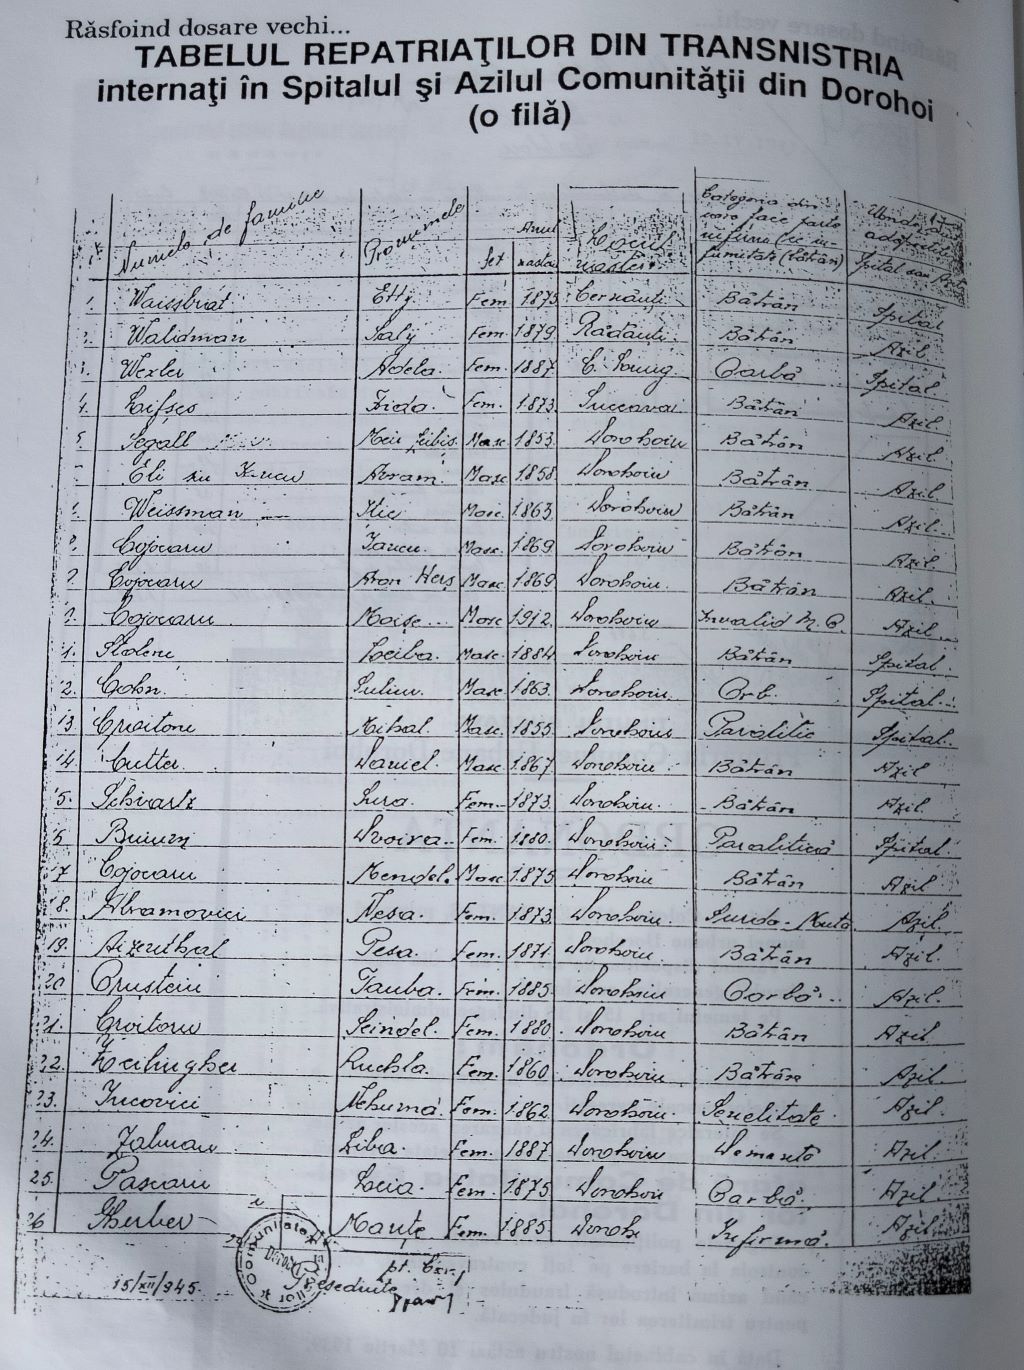 Răsfoind dosare vechi...
TABELUL REPATRIAŢILOR DIN TRANSNISTRIA
internaţi în Spitalul şi Azilul Comunităţii din Dorohoi
(o filă)
Numele de familie Pronumele Set Anul nașterii Locul nașterei Categoria din care face parte
1. Waissbrat Etty Fem 1875 Cernăuți Bătrân Spital
Waldman Saly Fem. 1879 Rădăuți Bătrân Azil
Wexler Adela Fem. 1887 C. Lung. Oarbă Spital.
4. Fem. 1873. Suceava Bătrân Azil
5 Segall Masc 1853. Dorohoiu Bătrân Azil.
Avram. Masc 1858. Dorohoiu Bătrân Azil.
Weissman Ilie Masc. 1863 Dorohoiu Bătrân Azil.
Cojocaru Iancu. Masc. 1869 Dorohoiu Bătrân Azil.
Cojocaru Aron Herș Masc 1869 Dorohoiu. Bătrân Azil.
Cojocaru Moise... Masc 1912. Dorohoiu Invalid Azil
Leiba. Masc. 1884 Dorohoiu Bătrân Spital.
2. Cohn. Iuliu. Masc 1863. Dorohoiu. Orb. Spital..
13 Croitoru Mihal. Masc. 1855 Dorohoiu Paralitic Spital.
14. Cutter. Daniel. Masc 1867 Dorohoiu. Bătrân Azil
5. Schvartz Sura. Fem. 1873. Dorohoiu. Bătrân Azil.
Dvoira. Fem. 1880. Dorohoiu. Paralitică Spital.
17 Cojocaru Mendel. Masc 1875 Dorohoiu Bătrân Azil
18. Abramovici Nesa. Fem. 1873. Dorohoiu Surdo-Mută Azil.
19. Aizenthal Pesa. Fem. 1871. Dorohoiu. Bătrân Azil.
20 Tauba. Fem. 1885. Dorohoiu Oarbă.. Azil.
21. Croitoru Seindel. Fem. 1880. Dorohoiu Bătrân Azil
22. Ruchla. Fem. 1860 Dorohoiu Bătrână Azil.
23. Iucovici Nehuma. Fem. 1862 Dorohoiu. Senelitate. Azil.
24. Zalman Liba. Fem. 1887 Dorohoiu Dementă Azil.
25. Pascaru Leia. Fem. 1875 Dorohoiu Oarbă. Azil.
26 Gherber Fem. 1885. Doroh. Infirmă. Azil.
15/XII/945. Președinte